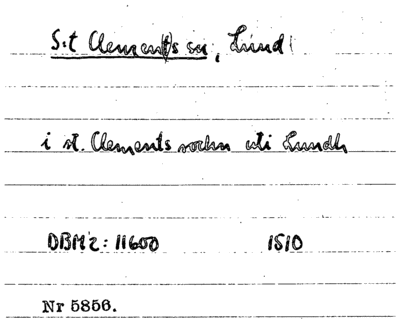 S:t Clements sn, Lund
i st. Clements sochn uti Lundh
DBM 2: 11600 1510
Nr 5856.